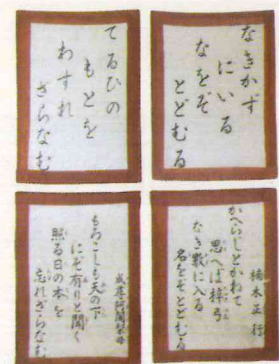 なきかず
にいる
なをぞ
とどむる
てるひの
もとを
わすれ
ざらなむ
楠木正行
かへらじとかねて
思へば梓弓
なき數に入る
名をぞとどむる
成尋阿闍梨母
もろこしも天の下
にぞ有りと聞く
照る日の本を
忘れざらなむ